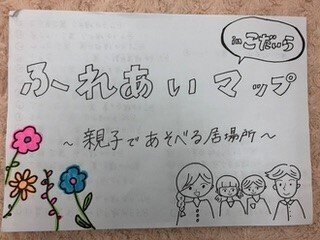 in こだいら
ふれあいマップ
～親子であそべる居場所～